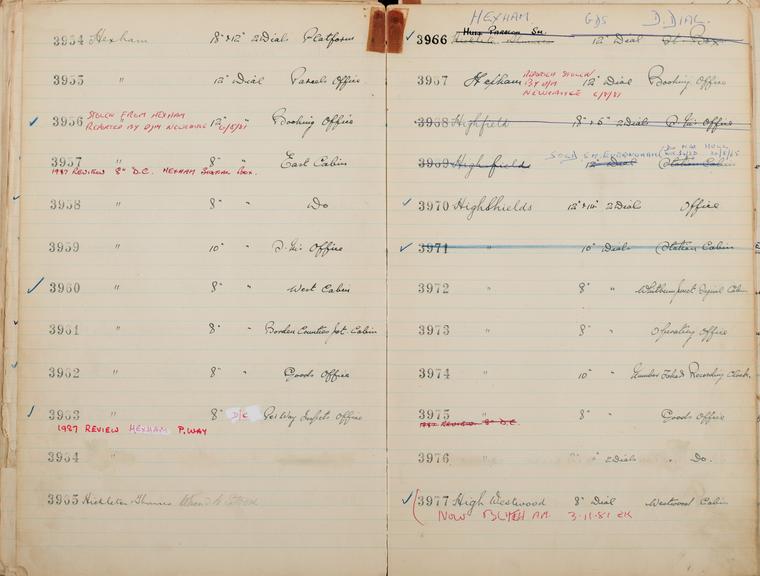 3954 Hexham 18" & 12" 2 Dials Platform
3955 " 12" Dial Parcels Office
STOLEN FROM HEXHAM
3956 12" " Booking Office
REPORTED BY D/M NEWCASTLE 6/8/81
3957 " 8" " East Cabin
1987 REVIEW 8" D.C. HEXHAM SIGNAL BOX.
3958 " 8" " Do
3959 " 10" " Office
3960 " 8" " West Cabin
3961 " 8" " Border Counties Junct. Cabin
3962 " 8" " Goods Office
3963 " 8" D/C Per Way Inspts Office
1987 REVIEW HEXHAM P.WAY
3964 "
3965
HEXHAM GDS D. DIAL.
3966 12" Dial
3967 Hexham REPORTED STOLEN 12" Dial Booking Office
BY D/M
NEWCASTLE 6/8/81
3968 Highfield 18" & 5" 2 Dials Office
3969 Highfields SOLD 12" Dial Station Cabin
3970 High Shields 12" & 12" 2 Dial Office
3971 " 10" Dials Station Cabin
3972 " 8" " Signal Cabin
3973 " 8" " Operating Office
3974 " 10" " Recording Clock.
3975 " 8" " Goods Office
1987 REVIEW 8" D.C.
3976 " 2 Dials Do.
3977 High Westwood 8" Dial Westwood Cabin
NOW BLYTH 3-11-81